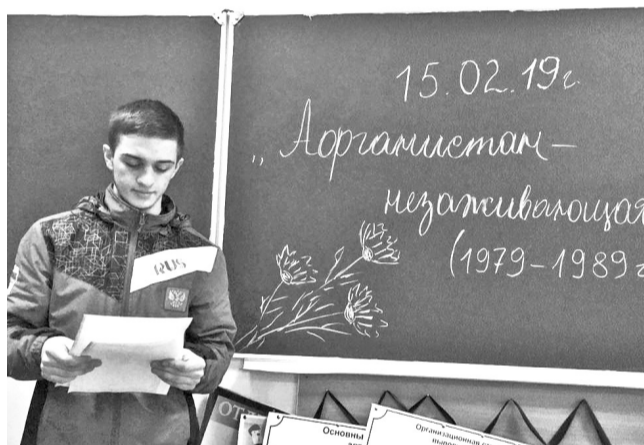 15.02.19г.
„Афганистан –
незаживающая
(1979–1989 г
RUS
ОТ
Основны
Организационная